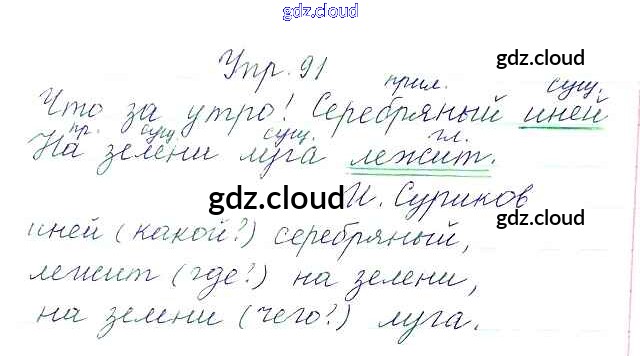 gdz.cloud
Упр. 91
gdz.cloud
прил. сущ.
Что за утро! Серебряный иней
пр. сущ сущ. гл.
На зелени луга лежит.
gdz.cloud И. Суриков
gdz.cloud
иней (какой?) серебряный,
лежит (где?) на зелени,
на зелени (чего?) луга.